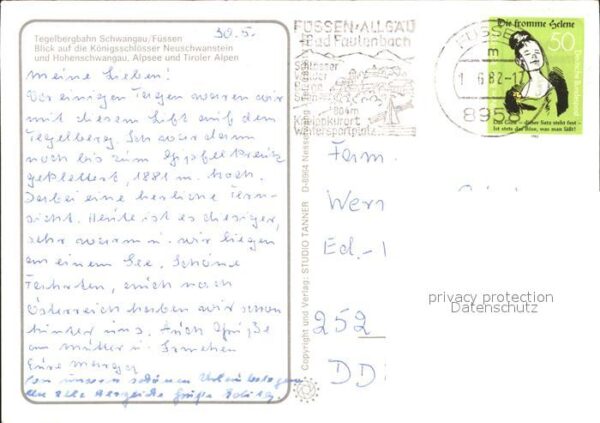 Tegelbergbahn Schwangau/Füssen
Blick auf die Königsschlösser Neuschwanstein
und Hohenschwangau, Alpsee und Tiroler Alpen
30.5.
Meine Lieben!
Vor einigen Tagen waren wir
mit diesem Lift auf dem
Tegelberg. Ich war dann
noch bis zum Gipfelkreuz
geklettert, 1881 m. hoch.
Dabei eine herrliche Fern-
sicht. Heute ist es diesiger,
sehr warm u. wir liegen
an einem See. Schöne
Fahrten, auch nach
Österreich haben wir schon
hinter uns. Auch Grüße
an Mutter u.
Eure
Von unseren schönen Urlaubstagen
alle Grüße
Copyright und Verlag: STUDIO TANNER D-8964 Nesselwang
FÜSSEN·ALLGÄU
Bad Faulenbach
Schlösser
804m
Kneippkurort
Wintersportplatz
FÜSSEN
m
1.6.82-17
8958
Die fromme Helene
50
Deutsche Bundespost
Das Gute – dieser Satz steht fest –
Ist stets das Böse, was man läßt!
Fam.
Wern
Ed.-
252
DD
privacy protection
Datenschutz